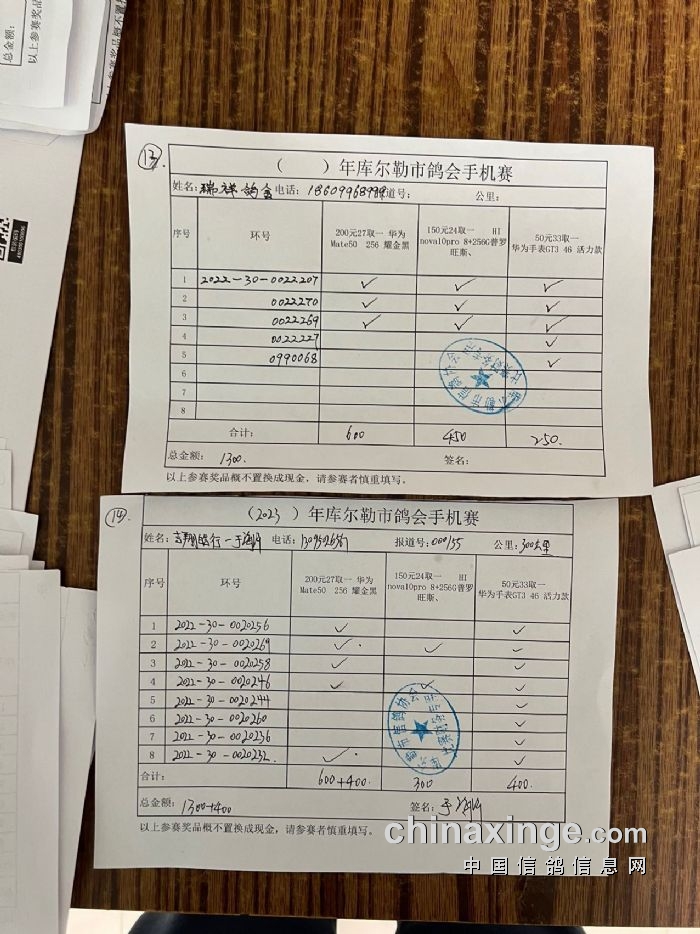 总金额:
以上参赛奖品概不置换
13.
( ) 年库尔勒市鸽会手机赛
姓名: 瑞祥鸽舍 电话: 报道号: 公里:
序号 环号 200元27取一 华为Mate50 256 耀金黑 150元24取一 HI nova10pro 8+256G普罗旺斯、 50元33取一 华为手表GT3 46 活力款
1 2022-30-0022207 ✓ ✓ ✓
2 0022270 ✓ ✓ ✓
3 0022269 ✓ ✓ ✓
4 0022227 ✓
5 0990068 ✓
6
7
8
合计: 600 450 250.
总金额: 1300. 签名:
以上参赛奖品概不置换成现金, 请参赛者慎重填写。
14.
(2023 ) 年库尔勒市鸽会手机赛
姓名: 电话: 报道号: 000155 公里: 300公里
序号 环号 200元27取一 华为Mate50 256 耀金黑 150元24取一 HI nova10pro 8+256G普罗旺斯、 50元33取一 华为手表GT3 46 活力款
1 2022-30-0020256 ✓ ✓
2 2022-30-0020269 ✓ ✓ ✓
3 2022-30-0020258 ✓ ✓
4 2022-30-0020246 ✓ ✓ ✓
5 2022-30-0020244 ✓
6 2022-30-0020260 ✓
7 2022-30-0020236 ✓
8 2022-30-0020232. ✓ ✓
合计: 600+400. 300 400.
总金额: 1300+400 签名:
以上参赛奖品概不置换成现金, 请参赛者慎重填写。
chinaxinge.com
中国信鸽信息网